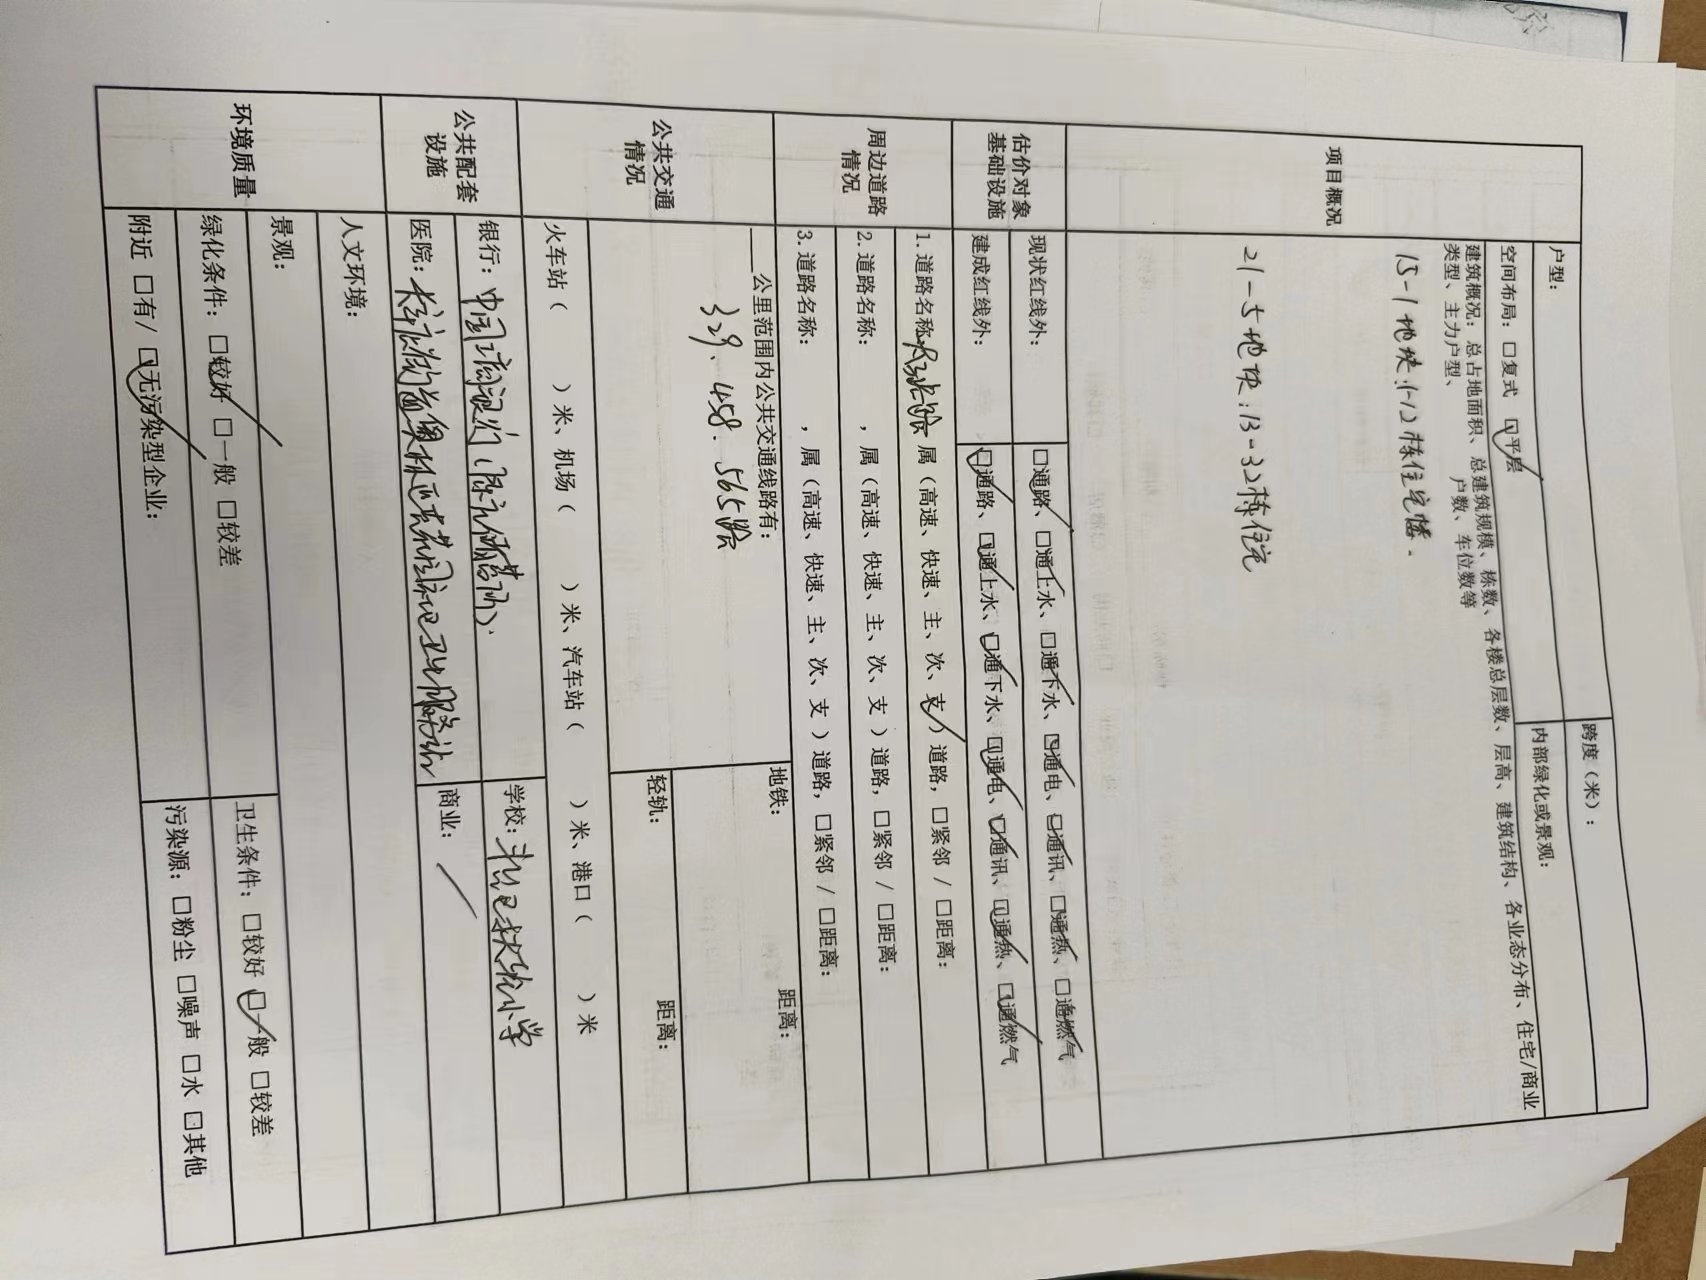 跨度（米）：
户型：
内部绿化或景观：
空间布局：□复式 ☑平层
项目概况
建筑概况：总占地面积、总建筑规模、栋数、各楼总层数、层高、建筑结构、各业态分布、住宅/商业
类型、主力户型、 户数、车位数等
15-1地块:1-12栋住宅楼.
21-5地块:13-32栋住宅
估价对象
基础设施
现状红线外：
☑通路、☑通上水、☑通下水、☑通电、☑通讯、☑通热、☑通燃气
建成红线外：
☑通路、☑通上水、☑通下水、☑通电、☑通讯、☑通热、☑通燃气
周边道路
情况
1.道路名称 路 属（高速、快速、主、次、支✓）道路，□紧邻 / □距离：
2.道路名称： ，属（高速、快速、主、次、支 ）道路，□紧邻 / □距离：
3.道路名称： ，属（高速、快速、主、次、支 ）道路，□紧邻 / □距离：
公共交通
情况
___公里范围内公共交通线路有：
329. 458. 565路
地铁： 距离：
轻轨： 距离：
火车站（ ）米、机场（ ）米、汽车站（ ）米、港口（ ）米
公共配套
设施
银行：中国工商银行
学校： 小学
医院： 卫生服务站
商业： /
环境质量
人文环境：
景观：
绿化条件：☑较好 □一般 □较差
卫生条件：□较好 ☑一般 □较差
附近 □有/ ☑无污染型企业：
污染源：□粉尘 □噪声 □水 □其他